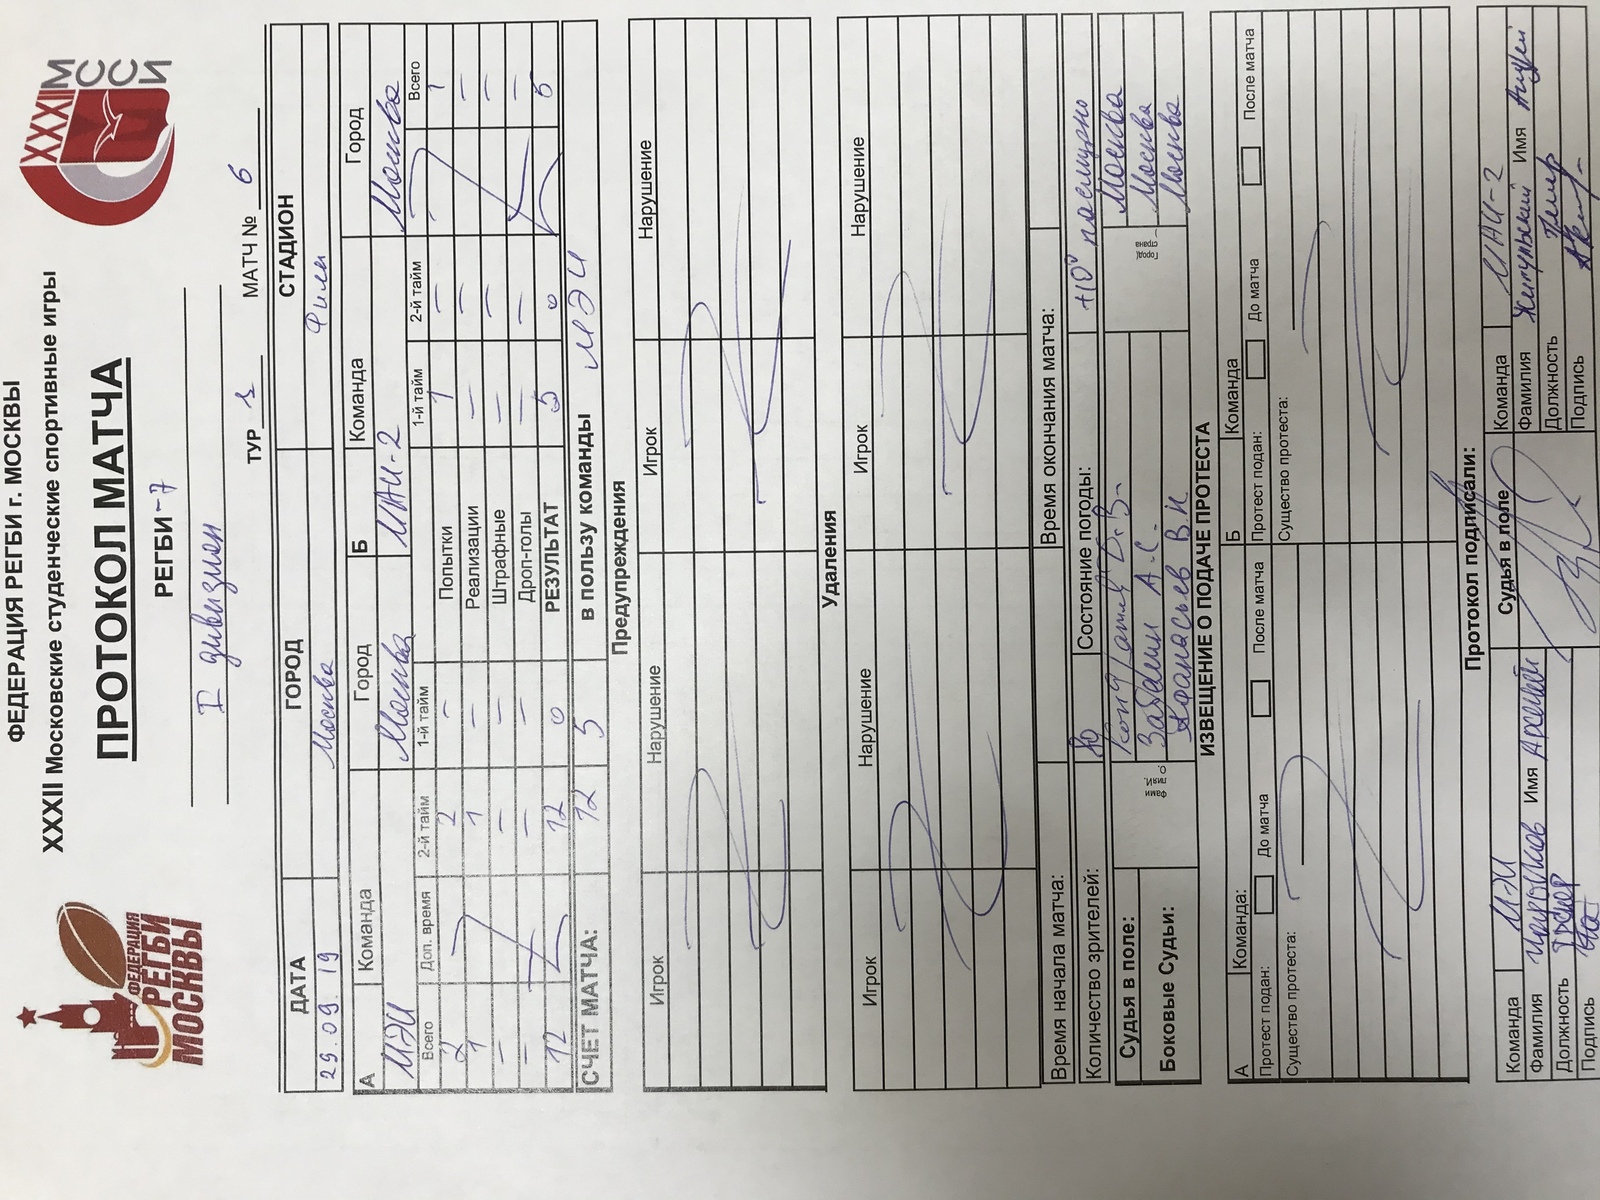 ФЕДЕРАЦИЯ РЕГБИ г. МОСКВЫ
XXXII Московские студенческие спортивные игры
ФЕДЕРАЦИЯ
РЕГБИ
МОСКВЫ
XXXII М
С С
С И
ПРОТОКОЛ МАТЧА
РЕГБИ-7
дивизион
ТУР МАТЧ № 6
ДАТА ГОРОД СТАДИОН
29.09.19 Москва Фили
А Команда Город Б Команда Город
МЭИ Москва МАИ-2 Москва
Всего Доп. время 2-й тайм 1-й тайм 1-й тайм 2-й тайм Всего
2 2 — Попытки 1 — 1
1 1 — Реализации — — —
— — — Штрафные — — —
— — — Дроп-голы — — —
12 12 0 РЕЗУЛЬТАТ 5 0 5
СЧЕТ МАТЧА: 12 5 в пользу команды МЭИ
Предупреждения
Игрок Нарушение Игрок Нарушение
Удаления
Игрок Нарушение Игрок Нарушение
Время начала матча: Время окончания матча:
Количество зрителей: 80 Состояние погоды: +10° пасмурно
Судья в поле: Москва
Боковые Судьи: Забелин А.С. Москва
Афанасьев В.И. Москва
ИЗВЕЩЕНИЕ О ПОДАЧЕ ПРОТЕСТА
А Команда: Б Команда
Протест подан: До матча После матча Протест подан: До матча После матча
Существо протеста: Существо протеста:
Протокол подписали:
Команда МЭИ Судья в поле Команда МАИ-2
Фамилия Имя Фамилия Имя Андрей
Должность Должность
Подпись Подпись